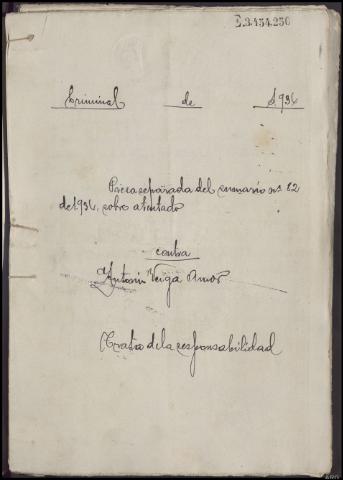 E.3.454.250
Criminal de 1936
Pieza separada del sumario nº 82
de 1936, sobre atentado
contra
Antonio Veiga Amor
Trata de la responsabilidad